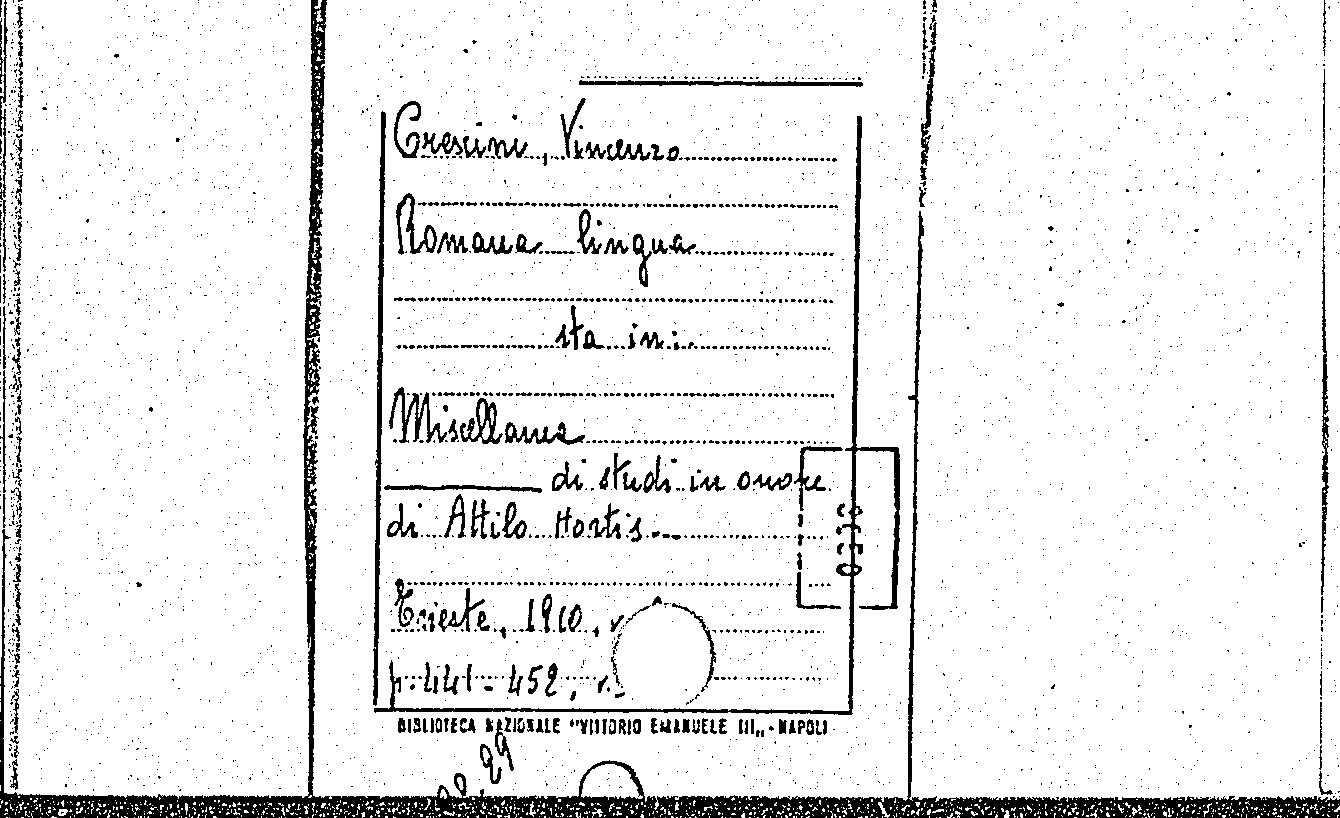 Crescini, Vincenzo
Romana lingua
sta in:
Miscellanea
di studi in onore
di Attilo Hortis...
Trieste, 1910, v.
p. 441-452, v.
BIBLIOTECA NAZIONALE "VITTORIO EMANUELE III„ - NAPOLI
29